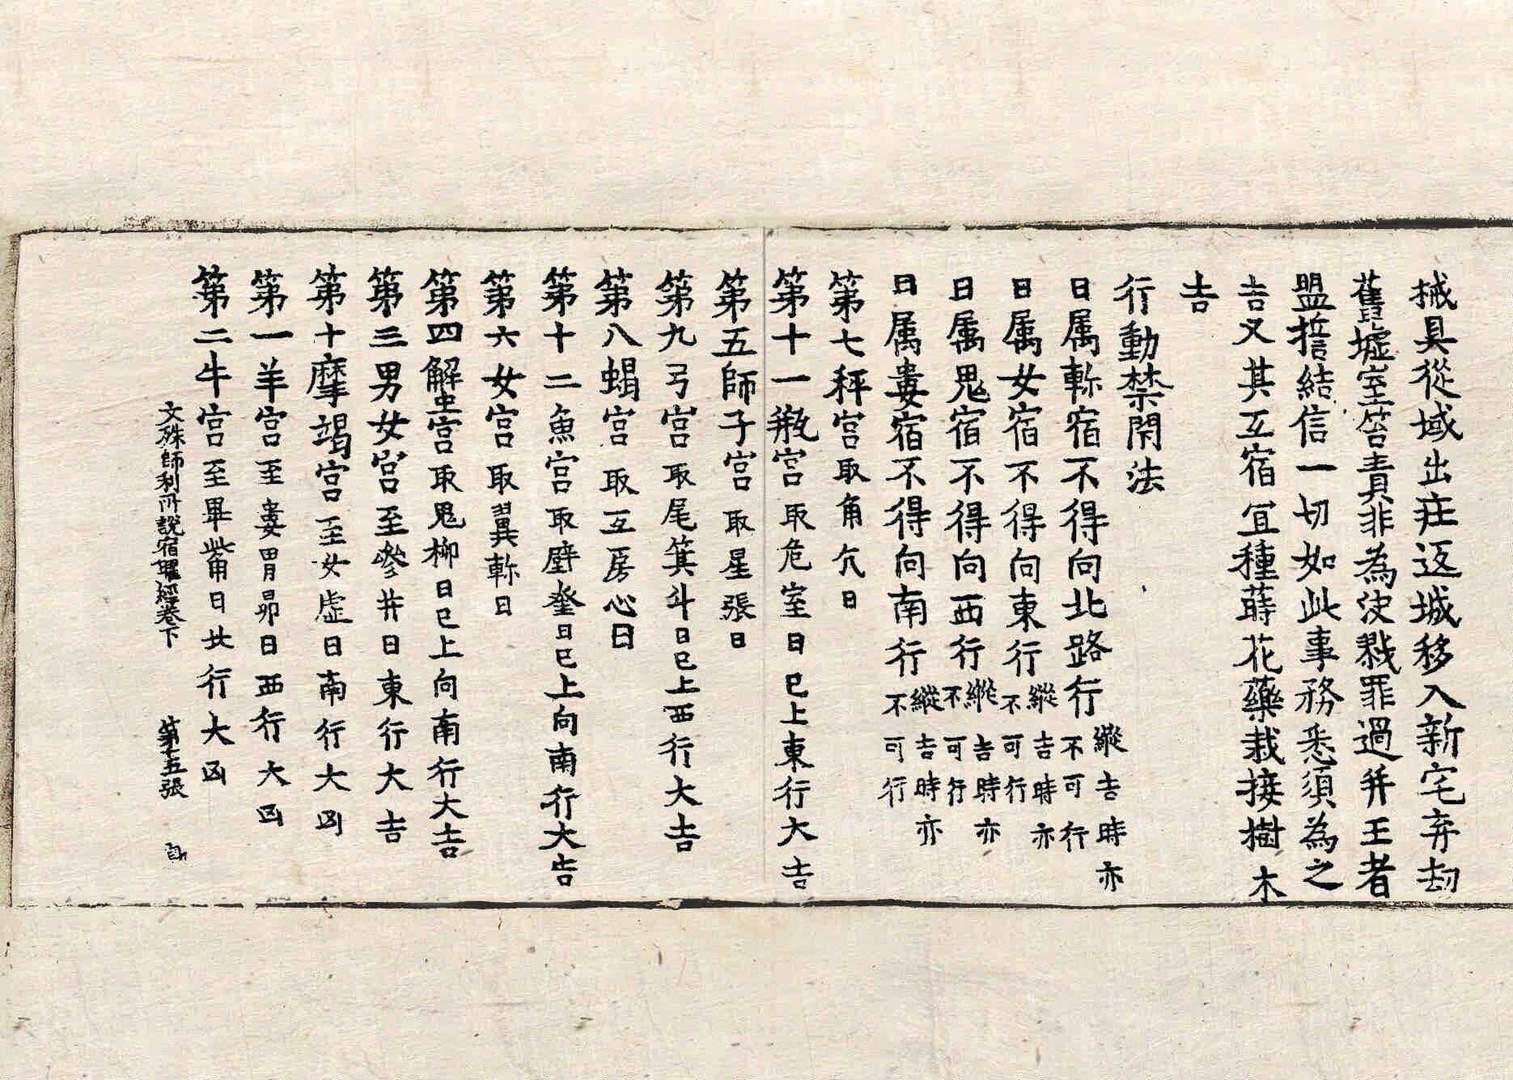 械具從域出莊返城移入新宅弃刧
舊墟室笞責非為決戮罪過并王者
盟誓結信一切如此事務悉須為之
吉又其互宿宜種蒔花藥栽接樹木
吉
行動禁閇法
日属軫宿不得向北路行縱吉時亦不可行
日属女宿不得向東行縱吉時亦不可行
日属鬼宿不得向西行縱吉時亦不可行
日属婁宿不得向南行縱吉時亦不可行
第七秤宮取角亢日
第十一瓶宮取危室日已上東行大吉
第五師子宮取星張日
第九弓宮取尾箕斗日已上西行大吉
第八蝎宮取互房心日
第十二魚宮取壁奎日已上向南行大吉
第六女宮取翼軫日
第四蠏宮取鬼柳日已上向南行大吉
第三男女宮至參井日東行大吉
第十摩竭宮至女虛日南行大凶
第一羊宮至婁胃昴日西行大凶
第二牛宮至畢觜日北行大凶
文殊師利所說宿曜經卷下 第十五張